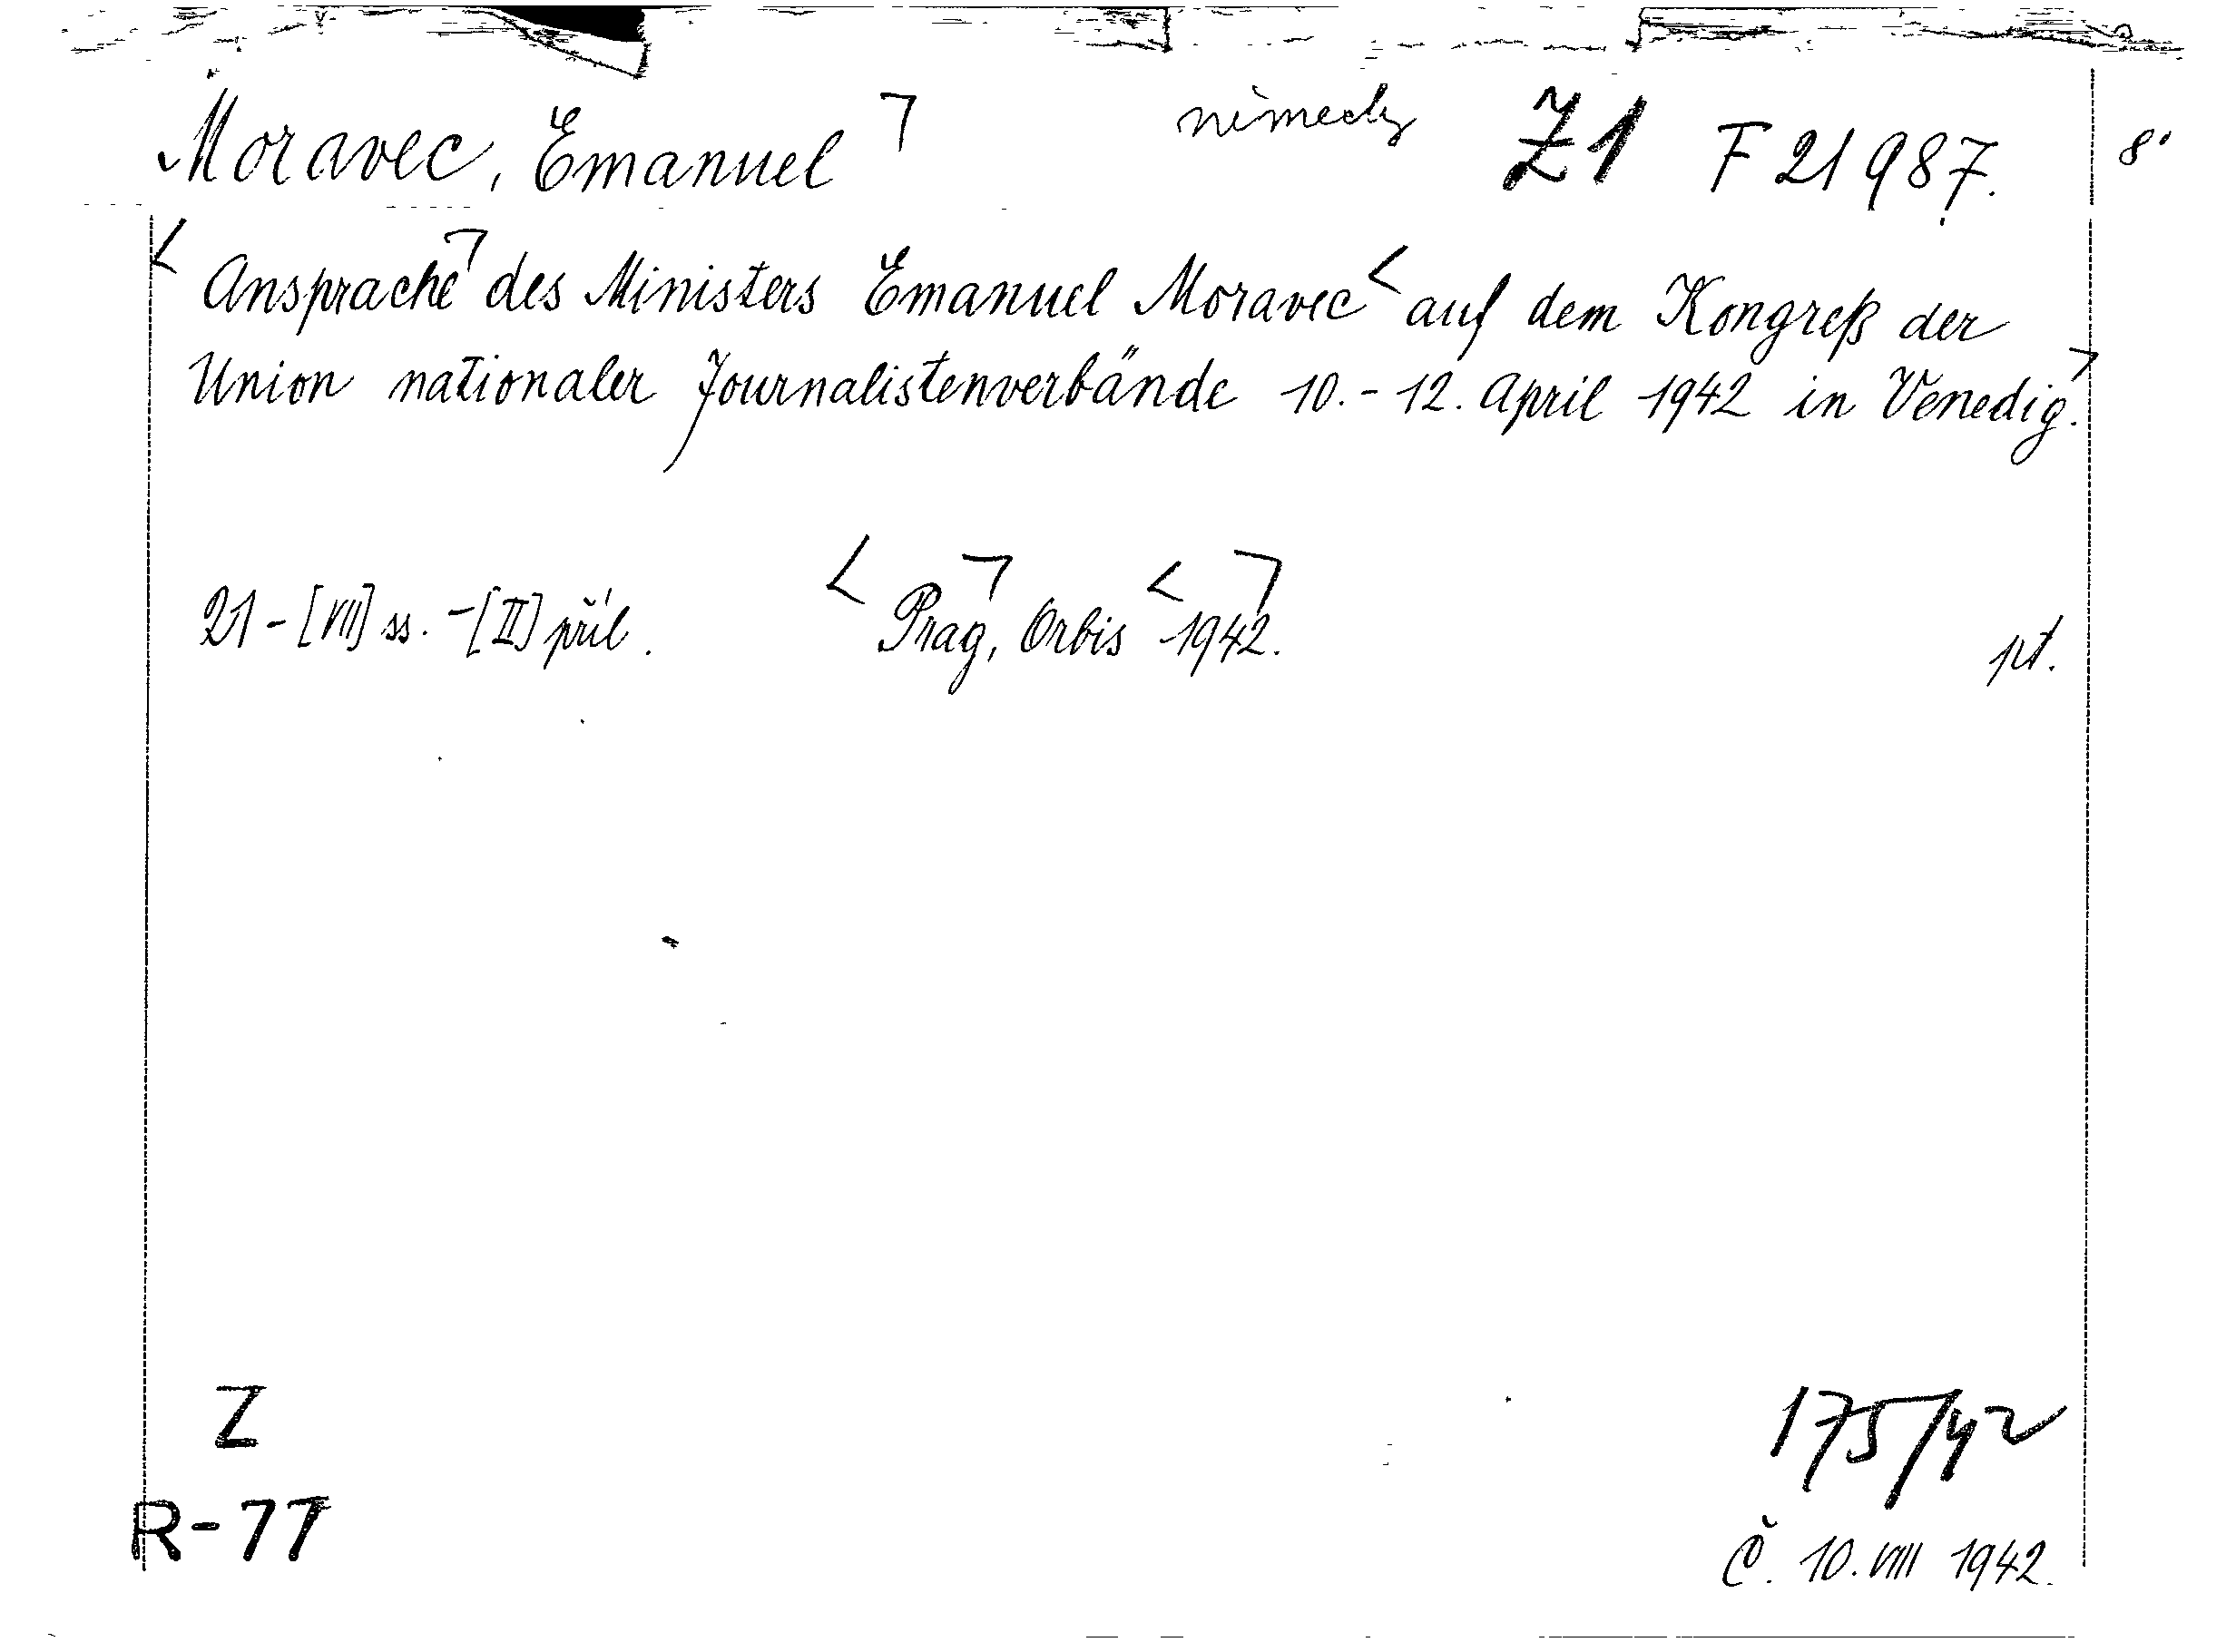 Moravec, Emanuel německy Z1 F 21987. 8°
Ansprache des Ministers Emanuel Moravec auf dem Kongreß der
Union nationaler Journalistenverbände 10.-12. April 1942 in Venedig.
21-[VII] ss. -[II] příl. Prag, Orbis 1942. pt.
Z
175/42
R-77
Č. 10. VIII 1942.